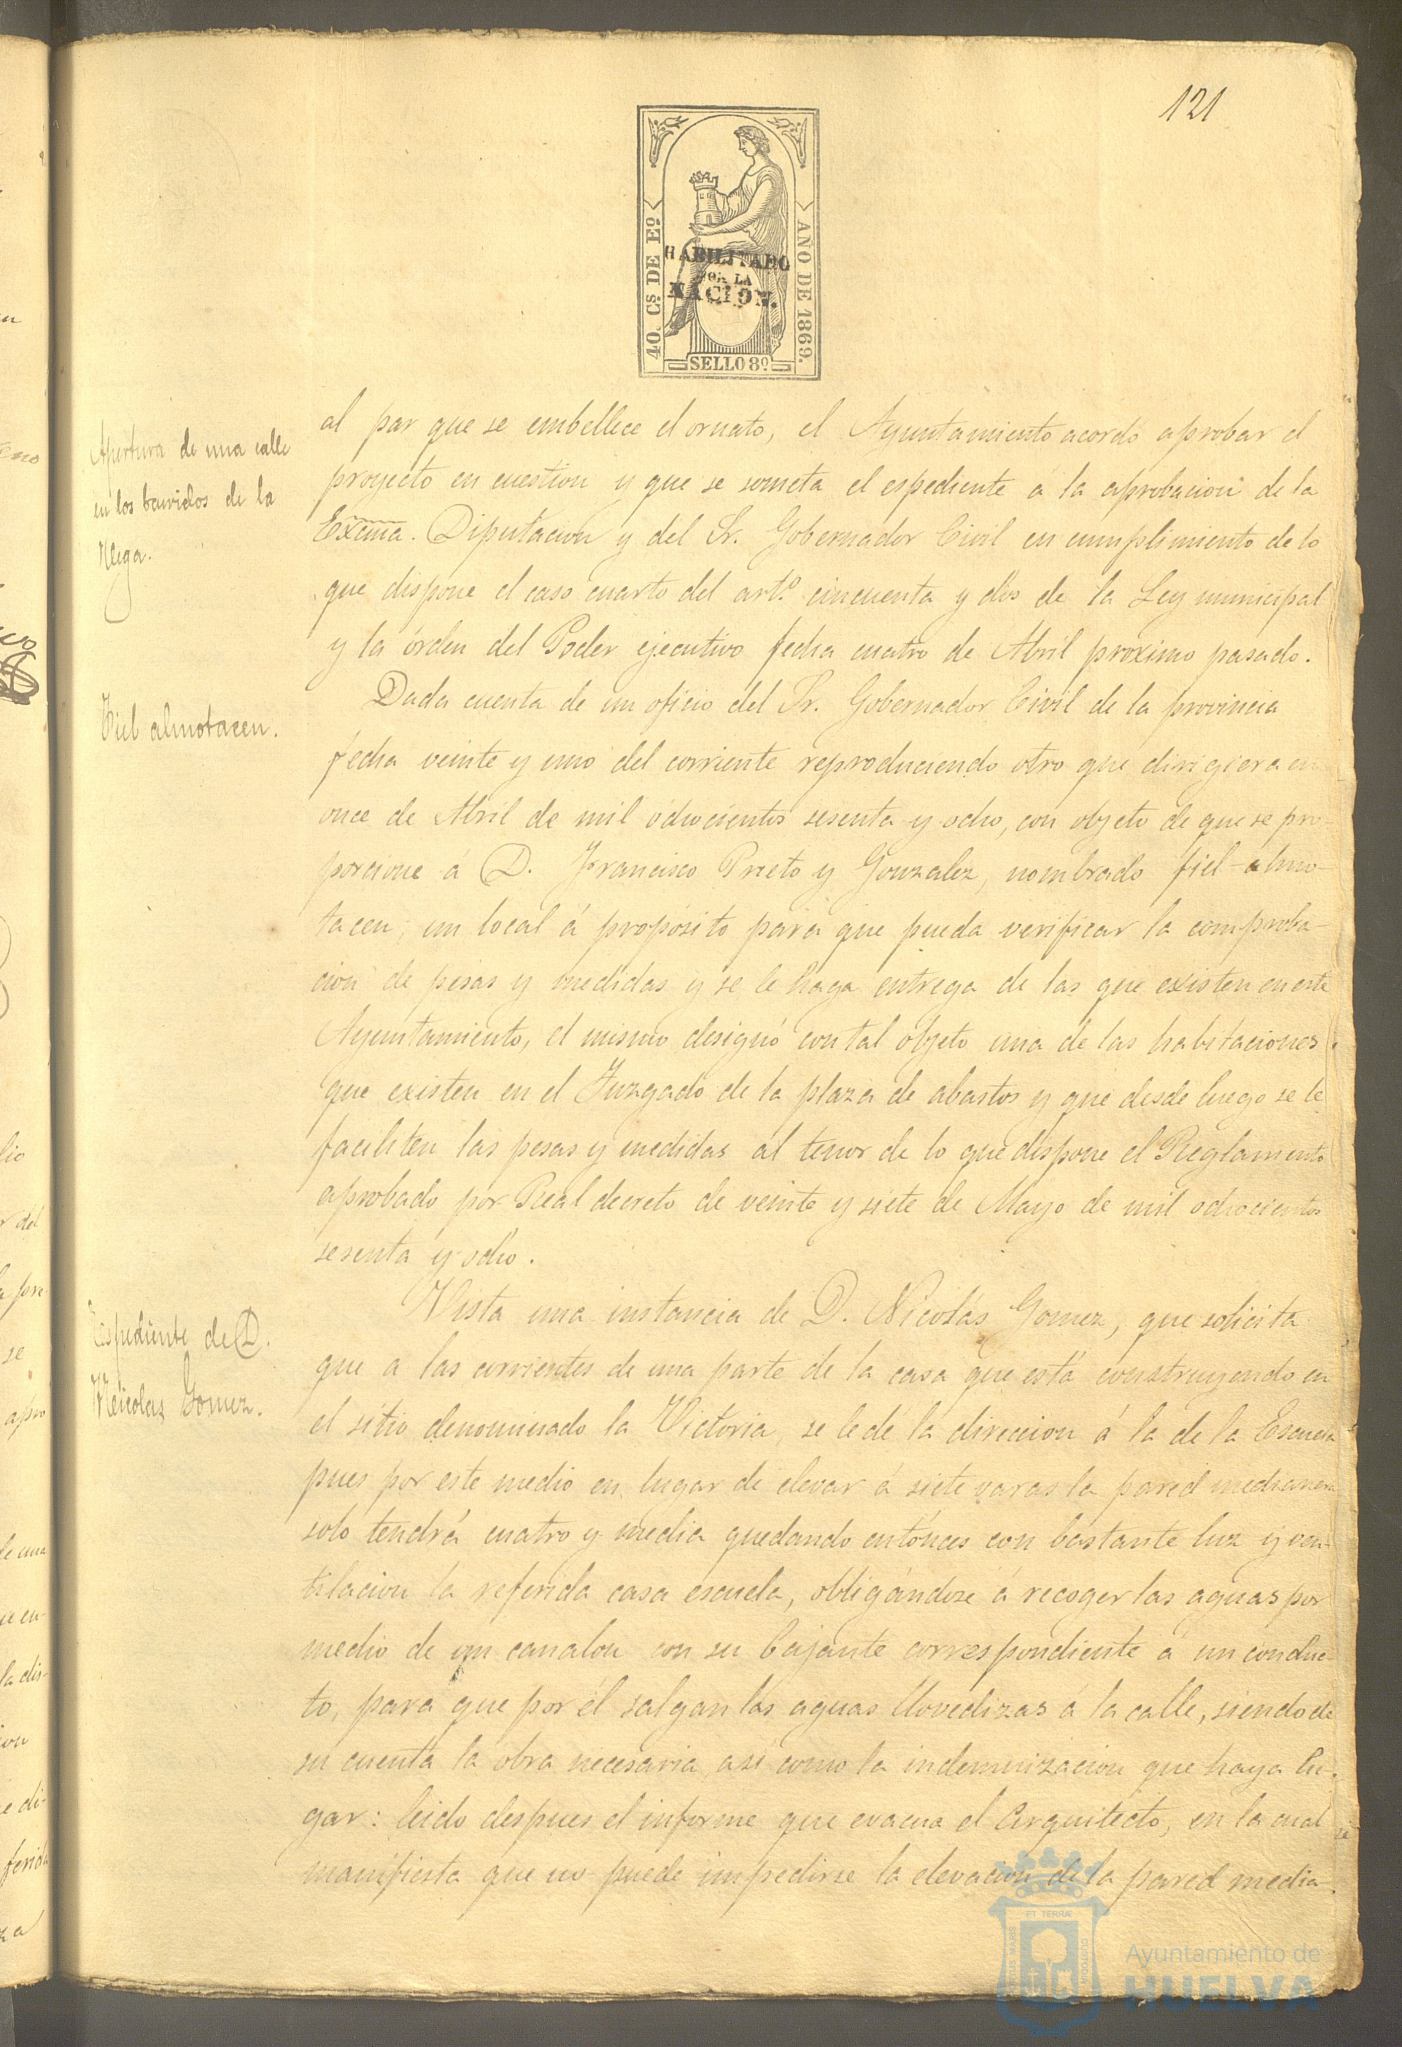 121
40. Cs DE Eº
AÑO DE 1869.
HABILITADO
POR LA
NACION.
SELLO 8º
Apertura de una calle
en los barridos de la
Vega.
al par que se embellece el ornato, el Ayuntamiento acordó aprobar el
proyecto en cuestion y que se someta el espediente á la aprobacion de la
Excma. Diputacion y del Sr. Gobernador Civil en cumplimiento de lo
que dispone el caso cuarto del artº. cincuenta y dos de la Ley municipal
y la órden del Poder ejecutivo fecha cuatro de Abril próximo pasado.
Fiel almotacen.
Dada cuenta de un oficio del Sr. Gobernador Civil de la provincia
fecha veinte y uno del corriente reproduciendo otro que dirigiera en
once de Abril de mil ochocientos sesenta y ocho, con objeto de que se pro-
porcione á D. Francisco Prieto y Gonzalez, nombrado fiel-almo-
tacen, un local á propósito para que pueda verificar la comproba-
cion de pesas y medidas y se le haga entrega de las que existen en este
Ayuntamiento, el mismo designó con tal objeto una de las habitaciones
que existen en el Juzgado de la plaza de abastos y que desde luego se le
faciliten las pesas y medidas al tenor de lo que dispone el Reglamento
aprobado por Real decreto de veinte y siete de Mayo de mil ochocientos
sesenta y ocho.
Espediente de D.
Nicolas Gomez.
Vista una instancia de D. Nicolás Gomez, que solicita
que a las corrientes de una parte de la casa que está construyendo en
el sitio denominado la Victoria, se le dé la direccion á la de la Escuela
pues por este medio en lugar de elevar á siete varas la pared medianera
solo tendrá cuatro y media quedando entónces con bastante luz y ven-
tilacion la referida casa escuela, obligándose á recoger las aguas por
medio de un canalon con su bajante correspondiente á un conduc-
to, para que por él salgan las aguas llovedizas á la calle, siendo de
su cuenta la obra necesaria así como la indemnizacion que haya lu-
gar: leido despues el informe que evacua el Arquitecto, en la cual
manifiesta que no puede impedirse la elevacion de la pared media-
Ayuntamiento de
HUELVA